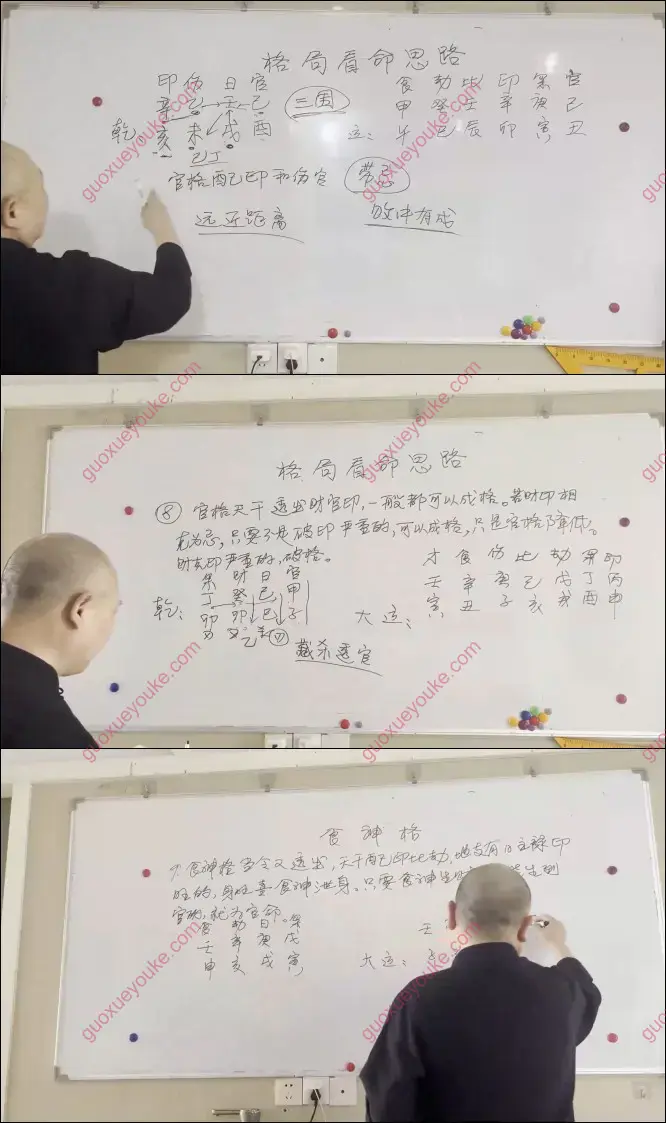 格局看命思路
印 伤 日 官
辛 乙 壬 己
三围
乾: 亥 未 戌 酉
己丁
食 劫 比 印 枭 官
甲 癸 壬 辛 庚 己
运: 午 巳 辰 卯 寅 丑
官格配印和伤官
带忌
远近距离
败中有成
guoxueyouke.com
格局看命思路
⑧ 官格天干透出财官印,一般都可以成格。若财印相
克为忌,只要不是破印严重的,可以成格,只是官格降低。
财克印严重的,破格。
枭 财 日 官
丁 癸 己 甲
乾: 卯 卯 巳 子
乙
藏杀透官
才 食 伤 比 劫 枭 印
壬 辛 庚 己 戊 丁 丙
大运: 寅 丑 子 亥 戌 酉 申
guoxueyouke.com
食神格
食神格当令又透出,天干配印比劫,地支有日主禄印
旺的,身旺喜食神泄身。只要食神生
官的,就为富命。
食 劫 日 枭
壬 辛 庚 戊
申 亥 戌 寅
壬
大运: 子
guoxueyouke.com